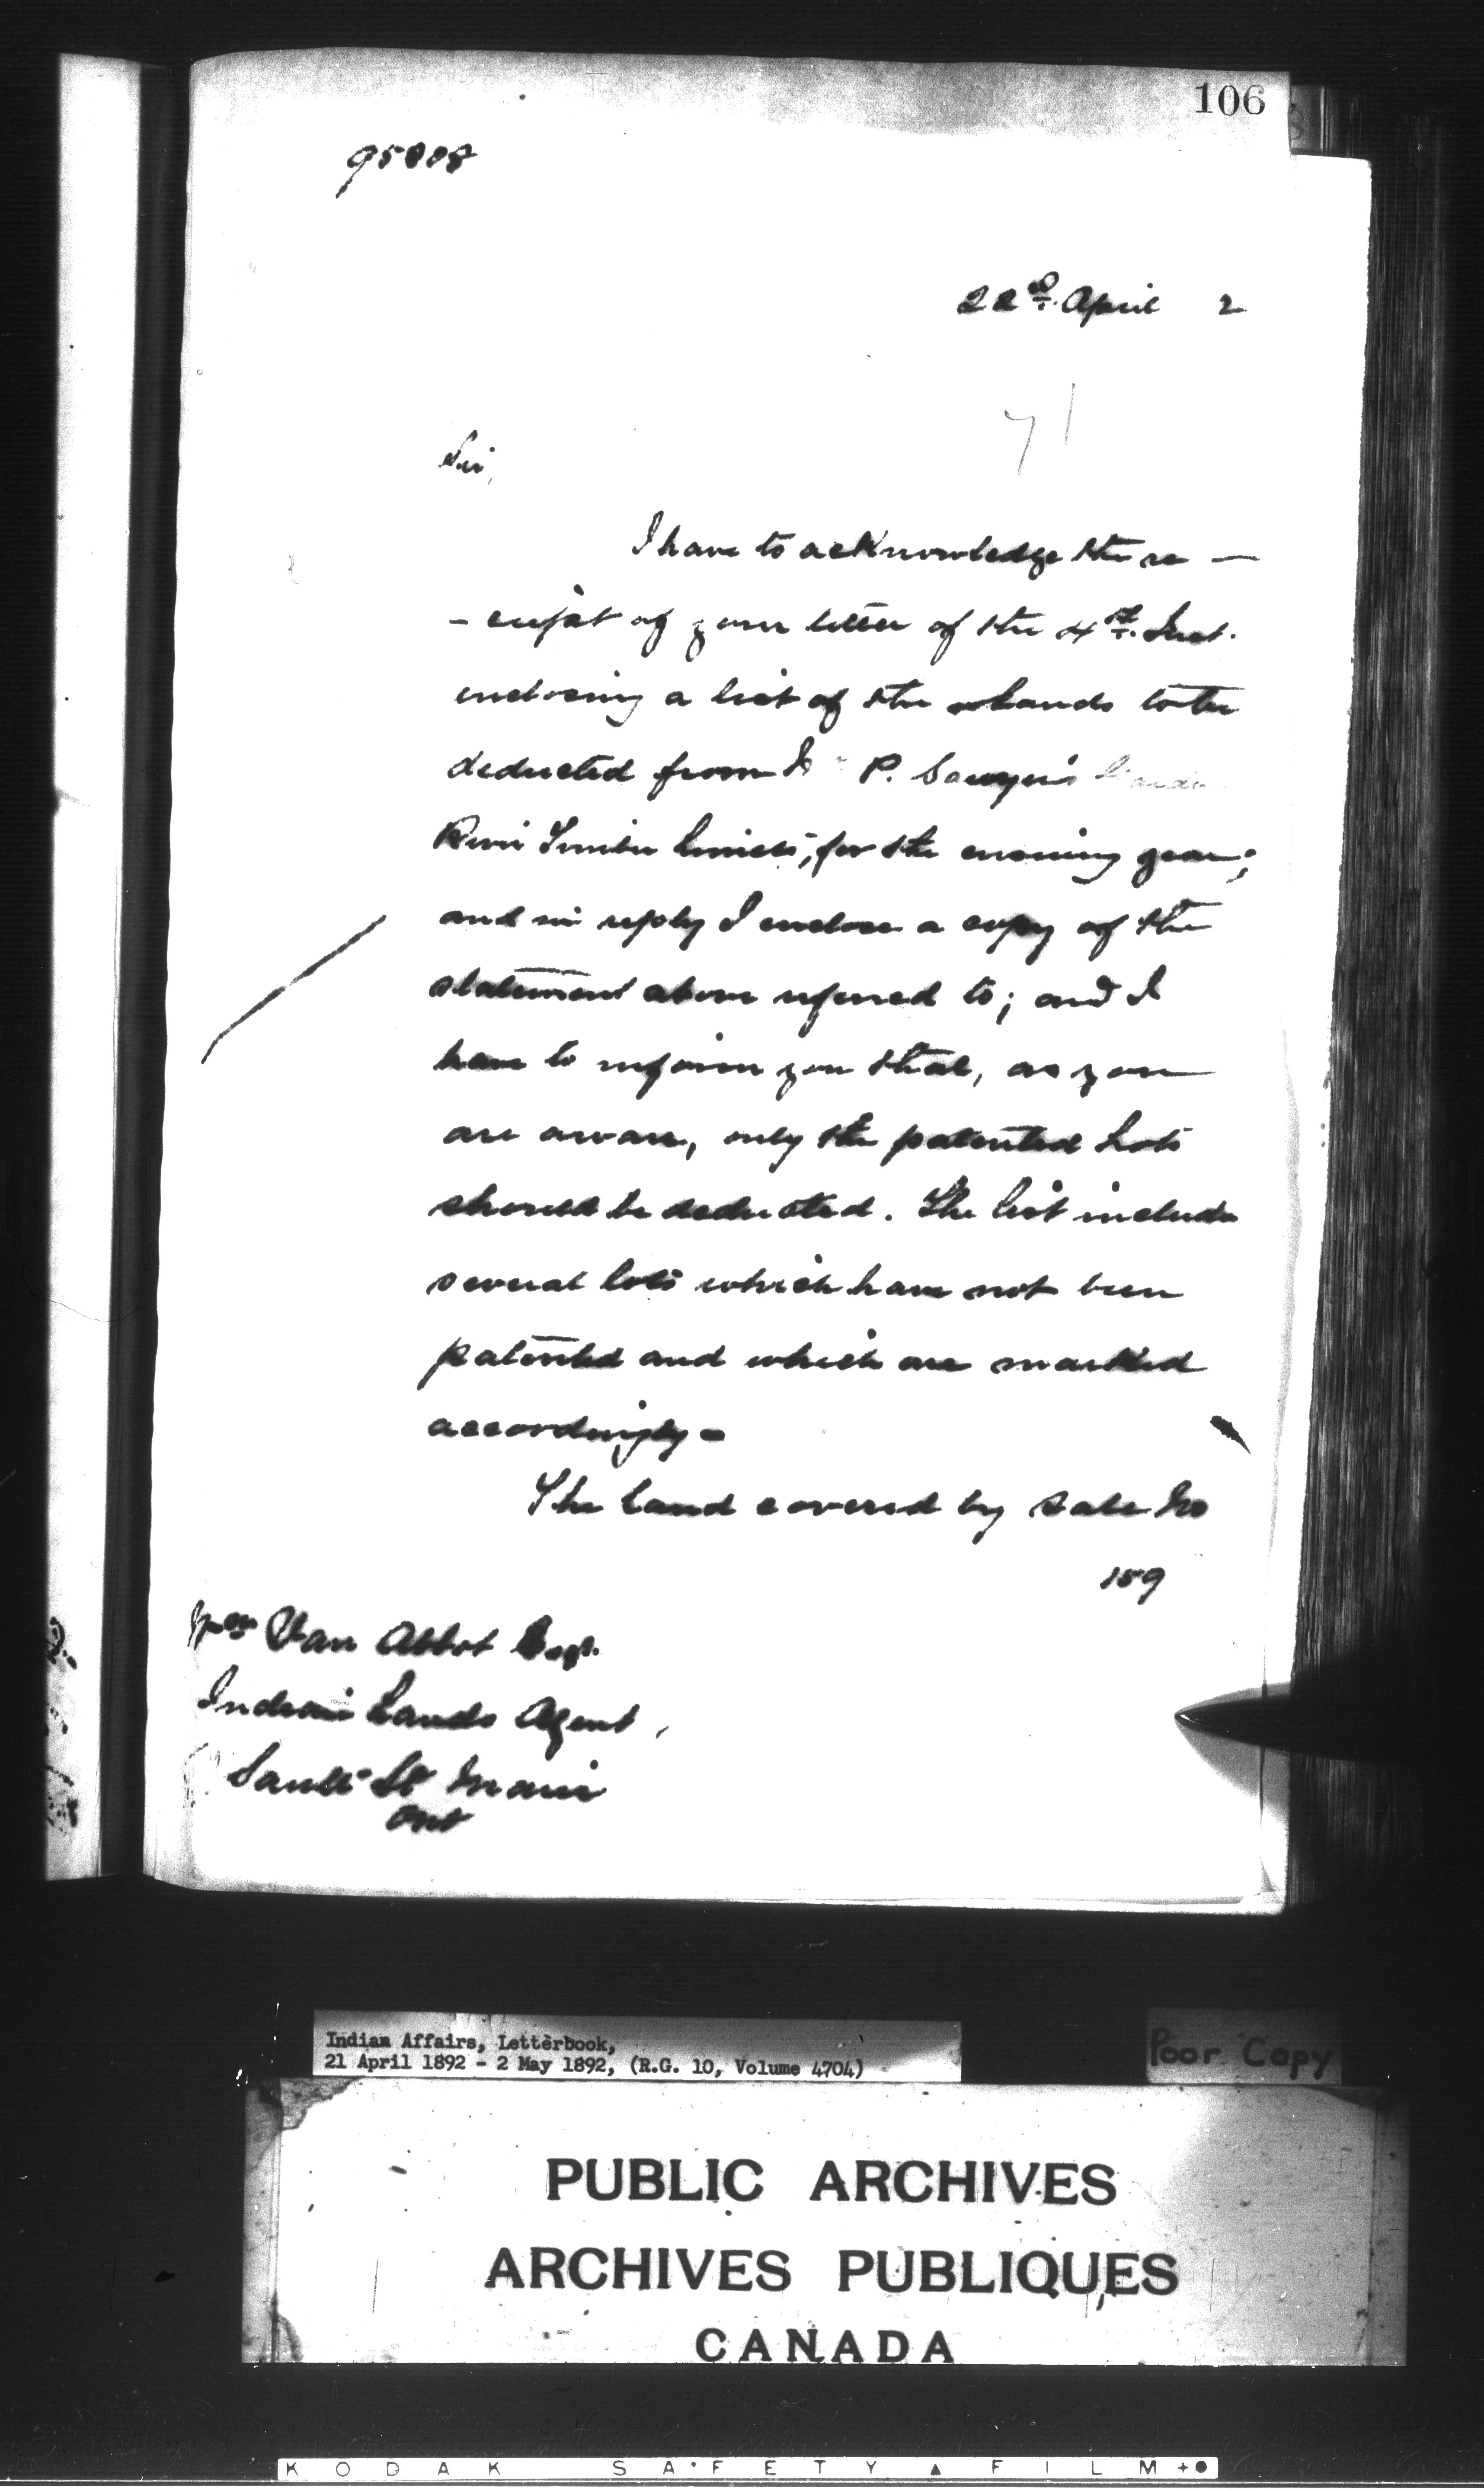 106
22nd. April 2
Sir,
I have to acknowledge the re-
-ceipt of your letter of the 4th. Inst.
enclosing a list of the lands to be
deducted from P. Sawyer's
River Timber limits, for the ensuing year;
and in reply I enclose a copy of the
statement above referred to; and I
have to inform you that, as you
are aware, only the patented Lots
should be deducted. The list includes
several lots which have not been
patented and which are marked
accordingly -
The land covered by sale No
159
Wm Van Abbot Esqr.
Indian Lands Agent,
Sault St Marie
Ont
Indian Affairs, Letterbook,
21 April 1892 - 2 May 1892, (R.G. 10, Volume 4704)
Poor Copy
PUBLIC ARCHIVES
ARCHIVES PUBLIQUES
CANADA
KODAK SAFETY FILM